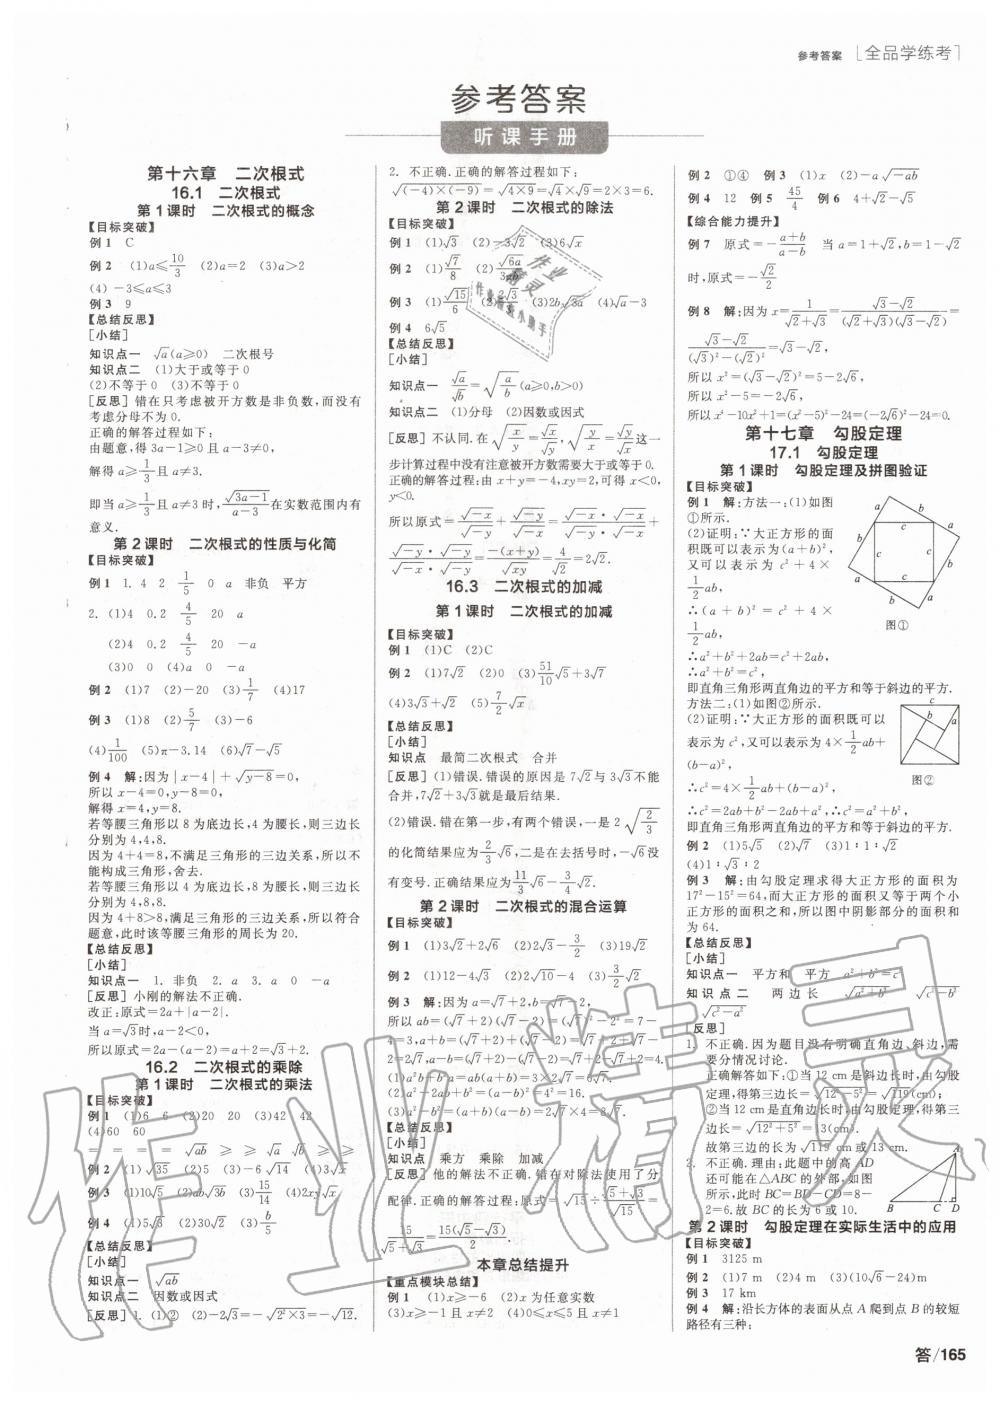 参考答案 [全品学练考]
参考答案
听课手册
第十六章 二次根式
16.1 二次根式
第1课时 二次根式的概念
【目标突破】
例1 C
例2 (1)a≤10/3 (2)a=2 (3)a>2
(4) -3≤a≤3
例3 9
【总结反思】
[小结]
知识点一 √a(a≥0) 二次根号
知识点二 (1)大于或等于0
(2)不等于0 (3)不等于0
[反思] 错在只考虑被开方数是非负数,而没有
考虑分母不为0.
正确的解答过程如下:
由题意,得3a-1≥0且a-3≠0,
解得a≥1/3且a≠3.
即当a≥1/3且a≠3时,√(3a-1)/(a-3)在实数范围内有
意义.
第2课时 二次根式的性质与化简
【目标突破】
例1 1.4 2 1/5 0 a 非负 平方
2. (1)4 0.2 4/5 20 a
(2)4 0.2 4/5 20 -a
(3)0 0 (4)a 0 -a
例2 (1)7 (2)-20 (3)1/7 (4)17
例3 (1)8 (2)5/7 (3)-6
(4)1/100 (5)π-3.14 (6)√7-√5
例4 解:因为|x-4|+√(y-8)=0,
所以x-4=0,y-8=0,
解得x=4,y=8.
若等腰三角形以8为底边长,4为腰长,则三边长
分别为4,4,8.
因为4+4=8,不满足三角形的三边关系,所以不
能构成三角形,舍去.
若等腰三角形以4为底边长,8为腰长,则三边长
分别为4,8,8.
因为4+8>8,满足三角形的三边关系,所以符合
题意,此时该等腰三角形的周长为20.
【总结反思】
[小结]
知识点一 1.非负 2.a 3.a 0 -a
[反思] 小刚的解法不正确.
改正:原式=2a+|a-2|.
当a=√3时,a-2<0,
所以原式=2a-(a-2)=a+2=√3+2.
16.2 二次根式的乘除
第1课时 二次根式的乘法
【目标突破】
例1 (1)6 6 (2)20 20 (3)42 42
(4)60 60
= = = = √ab ≥ ≥ ≥
例2 (1)√35 (2)5 (3)-6√14 (4)3√3
例3 (1)10√5 (2)ab√3b (3)15/14 (4)2xy√x
例4 (1)5√3 (2)30√2 (3)b/5
【总结反思】
[小结]
知识点一 √ab
知识点二 因数或因式
[反思] 1.(1)② (2)-2√3=-√(2²×3)=-√12.
2. 不正确.正确的解答过程如下:
√((-4)×(-9))=√(4×9)=√4×√9=2×3=6.
第2课时 二次根式的除法
【目标突破】
例1 (1)√3 (2)-3√2 (3)6√x
例2 (1)√7/8
例3 (1)√15/6 (2)2√3/3 (4)√a-3
例4 6√5
【总结反思】
[小结]
知识点一 √a/√b=√(a/b)(a≥0,b>0)
知识点二 (1)分母 (2)因数或因式
[反思] 不认同.在√(x/y)=√x/√y,√(y/x)=√y/√x这一
步计算过程中没有注意被开方数需要大于或等于0.
正确的解答过程:由x+y=-4,xy=2,可得x<0,
y<0.
所以原式=√-x/√-y+√-y/√-x=(√-x·√-x)/(√-y·√-x)+
(√-y·√-y)/(√-x·√-y)=-(x+y)/√xy=4/√2=2√2.
16.3 二次根式的加减
第1课时 二次根式的加减
【目标突破】
例1 (1)C (2)C
例2 (1)7√2 (2)0 (3)51/10√5+3√7
(4)3√3+√2 (5)7/2√x
【总结反思】
[小结]
知识点 最简二次根式 合并
[反思] (1)错误.错误的原因是7√2与3√3不能
合并,7√2+3√3就是最后结果.
(2)错误.错在第一步,有两个错误,一是2√(2/3)
的化简结果应为2/3√6,二是在去括号时,-√6没
有变号.正确结果应为11/3√6-3/4√2.
第2课时 二次根式的混合运算
【目标突破】
例1 (1)3√2+2√6 (2)2√3-3/2 (3)19√2
例2 (1)12-4√3 (2)2√10-4 (3)3/2√2
例3 解:因为a=√7+2,b=√7-2,
所以ab=(√7+2)(√7-2)=(√7)²-2²=7-
4=3,a+b=(√7+2)+(√7-2)=√7+2+√7-
2=2√7,a-b=(√7+2)-(√7-2)=√7+2-√7+2=4.
(1)a²b+ab²=ab(a+b)=3×2√7=6√7.
(3)a²-b²=(a+b)(a-b)=2√7×4=8√7.
【总结反思】
[小结]
知识点 乘方 乘除 加减
[反思] 他的解法不正确.错在对除法使用了分
配律.正确的解答过程:原式=√15÷(√5+√3)/√15=
15/(√5+√3)=15(√5-√3)/2.
本章总结提升
【重点模块总结】
例1 (1)x≥-6 (2)x为任意实数
(3)x≥-1且x≠2 (4)0≤x≤5且x≠1
例2 ①④ 例3 (1)x (2)-a√-ab
例4 12 例5 45/4 例6 4+√2-√5
【综合能力提升】
例7 原式=-(a+b)/(a-b) 当a=1+√2,b=1-√2
时,原式=-√2/2
例8 解:因为x=1/(√2+√3)=(√3-√2)/((√2+√3)(√3-√2))=
(√3-√2)/((√3)²-(√2)²)=√3-√2,
所以x²=(√3-√2)²=5-2√6,
所以x²-5=-2√6,
所以x⁴-10x²+1=(x²-5)²-24=(-2√6)²-24=0.
第十七章 勾股定理
17.1 勾股定理
第1课时 勾股定理及拼图验证
【目标突破】
例1 解:方法一:(1)如图
①所示.
(2)证明:∵大正方形的面
积既可以表示为(a+b)²,
又可以表示为c²+4×
1/2ab,
∴(a+b)²=c²+4×
1/2ab,
图①
∴a²+b²+2ab=c²+2ab,
∴a²+b²=c²,
即直角三角形两直角边的平方和等于斜边的平方.
方法二:(1)如图②所示.
(2)证明:∵大正方形的面积既可以
表示为c²,又可以表示为4×1/2ab+
(b-a)²,
图②
∴c²=4×1/2ab+(b-a)²,
∴c²=2ab+b²-2ab+a²,∴c²=a²+b²,
即直角三角形两直角边的平方和等于斜边的平方.
例2 (1)5√5 (2)√7 (3)1∶1∶√2
(4)1∶√3∶2
例3 解:由勾股定理求得大正方形的面积为
17²-15²=64,而大正方形的面积又等于两个小
正方形的面积之和,所以图中阴影部分的面积和
为64.
【总结反思】
[小结]
知识点一 平方和 平方 a²+b²=c²
知识点二 两边长 √(a²+b²) √(c²-b²)
√(c²-a²)
[反思]
1. 不正确.因为题目没有明确直角边、斜边,需
要分情况讨论.
正确解答如下:①当12 cm是斜边长时,由勾股
定理,得第三边长=√(12²-5²)=√119(cm);
②当12 cm是直角边长时,由勾股定理,得第三
边长=√(12²+5²)=13(cm).
故第三边的长为√119 cm或13 cm.
2. 不正确.理由:此题中的高AD
还可能在△ABC的外部,如图
所示,此时BC=BD-CD=8-
2=6.故BC的长为6或10.
第2课时 勾股定理在实际生活中的应用
【目标突破】
例1 3125 m
例2 (1)7 m (2)4 m (3)(10√6-24)m
例3 17 km
例4 解:沿长方体的表面从点A爬到点B的较短
路径有三种:
答/165